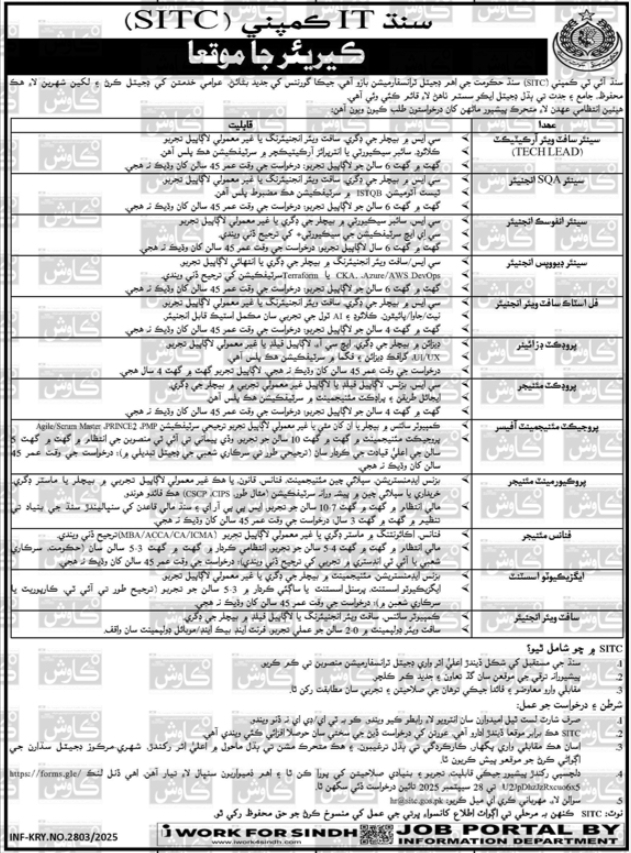 سنڌ IT ڪمپني (SITC)
ڪيريئر جا موقعا
سنڌ آئي ٽي ڪمپني (SITC) سنڌ حڪومت جي اهم ڊجيٽل ٽرانسفارميشن بازو آهي، جيڪا گورننس کي جديد بڻائڻ، عوامي خدمتن کي ڊجيٽل ڪرڻ ۽ لکين شهرين لاءِ هڪ
محفوظ، جامع ۽ جدت تي ٻڌل ڊجيٽل ايڪو سسٽم ٺاهڻ لاءِ قائم ڪئي وئي آهي.
هيٺين انتظامي عهدن لاءِ متحرڪ پيشيور ماڻهن کان درخواستون طلب ڪيون ويون آهن:
عهدا
قابليت
سينئر سافٽ ويئر آرڪيٽيڪٽ
(TECH LEAD)
سي ايس ۾ بيچلر جي ڊگري، سافٽ ويئر انجنيئرنگ يا غير معمولي لاڳاپيل تجربو.
ڪلائوڊ، سائبر سيڪيورٽي يا انٽرپرائز آرڪيٽيڪچر ۾ سرٽيفڪيشن هڪ پلس آهن.
گهٽ ۾ گهٽ 6 سالن جو لاڳاپيل تجربو؛ درخواست جي وقت عمر 45 سالن کان وڌيڪ نہ هجي.
سينئر SQA انجنيئر
سي ايس ۾ بيچلر جي ڊگري، سافٽ ويئر انجنيئرنگ يا غير معمولي لاڳاپيل تجربو.
ٽيسٽ آٽوميشن، ISTQB ۾ سرٽيفڪيشن هڪ مضبوط پلس آهن.
گهٽ ۾ گهٽ 6 سالن جو لاڳاپيل تجربو؛ درخواست جي وقت عمر 45 سالن کان وڌيڪ نہ هجي.
سينئر انفوسڪ انجنيئر
سي ايس، سائبر سيڪيورٽي ۾ بيچلر جي ڊگري يا غير معمولي لاڳاپيل تجربو.
سي اي ايڇ سرٽيفڪيشن جي سيڪيورٽي+ کي ترجيح ڏني ويندي.
گهٽ ۾ گهٽ 6 سال لاڳاپيل تجربو؛ درخواست جي وقت عمر 45 سالن کان وڌيڪ نہ هجي.
سينئر ڊيووپس انجنيئر
سي ايس/سافٽ ويئر انجنيئرنگ ۾ بيچلر جي ڊگري يا انتهائي لاڳاپيل تجربو.
CKA، Azure/AWS DevOps يا Terraform سرٽيفڪيشن کي ترجيح ڏني ويندي.
گهٽ ۾ گهٽ 6 سالن جو تجربو؛ درخواست جي وقت عمر 45 سالن کان وڌيڪ نہ هجي.
فل اسٽاڪ سافٽ ويئر انجنيئر
سي ايس ۾ بيچلر جي ڊگري، سافٽ ويئر انجنيئرنگ يا غير معمولي لاڳاپيل تجربو.
نيٽ/جاوا/پائيٿون، ڪلائوڊ ۽ AI ٽول جي تجربي سان مڪمل اسٽيڪ قابل انجنيئر.
گهٽ ۾ گهٽ 4 سالن جو لاڳاپيل تجربو؛ درخواست جي وقت عمر 45 سالن کان وڌيڪ نہ هجي.
پروڊڪٽ ڊزائينر
ڊيزائن ۾ بيچلر جي ڊگري، ايڇ سي آءِ، لاڳاپيل فيلڊ يا لاڳاپيل تجربو.
UI/UX، گرافڪ ڊيزائن ۽ فگما ۾ سرٽيفڪيشن هڪ پلس آهن.
درخواست جي وقت عمر 45 سالن کان وڌيڪ نہ هجي. لاڳاپيل تجربو گهٽ ۾ گهٽ 4 سال هجي.
پروڊڪٽ مئنيجر
سي ايس، بزنس، لاڳاپيل فيلڊ يا لاڳاپيل غير معمولي تجربي ۾ بيچلر جي ڊگري.
ايجائل طريقن ۽ پراڊڪٽ مئنيجمينٽ ۾ سرٽيفڪيشن هڪ پلس آهن.
گهٽ ۾ گهٽ 4 سالن جو تجربو؛ درخواست جي وقت عمر 45 سالن کان وڌيڪ نہ هجي.
پروجيڪٽ مئنيجمينٽ آفيسر
ڪمپيوٽر سائنس ۾ بيچلر يا ان کان مٿي يا غير معمولي لاڳاپيل تجربو ترجيحي سرٽيفڪيشن Agile/Scrum Master ،PRINCE2 ،PMP
پروجيڪٽ مئنيجمينٽ ۾ گهٽ ۾ گهٽ 10 سالن جو تجربو، وڏي پيماني تي آئي ٽي منصوبن جي انتظام ۾ گهٽ ۾ گهٽ 5
سالن جي اعليٰ قيادت جي ڪردار سان (ترجيحي طور تي سرڪاري شعبي جي ڊجيٽل تبديلي ۾)؛ درخواست جي وقت عمر 45
سالن کان وڌيڪ نہ هجي.
پروڪيورمينٽ مئنيجر
بزنس ايڊمنسٽريشن، سپلائي چين مئنيجمينٽ، فنانس، قانون، يا هڪ غير معمولي لاڳاپيل تجربي ۾ بيچلر يا ماسٽر ڊگري.
خريداري يا سپلائي چين ۾ پيشہ ورانہ سرٽيفڪيشن (مثال طور، CSCP ،CIPS) هڪ فائدو هوندو.
مالي انتظام ۾ گهٽ ۾ گهٽ 7-10 سالن جو تجربو، ايس پي پي آر اي ۽ سنڌ مالي قاعدن کي سنڀاليندڙ سنڌ جي بنياد تي
تنظيم ۾ گهٽ ۾ گهٽ 3 سال؛ درخواست جي وقت عمر 45 سالن کان وڌيڪ نہ هجي.
فنانس مئنيجر
فنانس، اڪائونٽنگ ۾ ماسٽر ڊگري يا غير معمولي لاڳاپيل تجربو (MBA/ACCA/CA/ICMA) ترجيح ڏني ويندي.
مالي انتظام ۾ گهٽ ۾ گهٽ 4-5 سالن جو تجربو، انتظامي ڪردار ۾ گهٽ ۾ گهٽ 3-5 سالن سان (حڪومت، سرڪاري
شعبي يا آئي ٽي انڊسٽري ۾ تجربي کي ترجيح ڏني ويندي)؛ درخواست جي وقت عمر 45 سالن کان وڌيڪ نہ هجي.
ايگزيڪيوٽو اسسٽنٽ
بزنس ايڊمنسٽريشن، مئنيجمينٽ ۾ بيچلر جي ڊگري يا غير معمولي لاڳاپيل تجربو.
ايگزيڪيوٽو اسسٽنٽ، پرسنل اسسٽنٽ يا ساڳئي ڪردار ۾ 3-5 سالن جو تجربو (ترجيح طور تي آئي ٽي، ڪارپوريٽ يا
سرڪاري شعبن ۾)؛ درخواست جي وقت عمر 45 سالن کان وڌيڪ نہ هجي.
سافٽ ويئر انجنيئر
ڪمپيوٽر سائنس، سافٽ ويئر انجنيئرنگ يا لاڳاپيل فيلڊ ۾ بيچلر جي ڊگري.
سافٽ ويئر ڊولپمينٽ ۾ 0-2 سالن جو عملي تجربو، فرنٽ اينڊ بيڪ اينڊ/موبائل ڊولپمينٽ سان واقف.
SITC ۾ ڇو شامل ٿيو؟
1. سنڌ جي مستقبل کي شڪل ڏيندڙ اعليٰ اثر واري ڊجيٽل ٽرانسفارميشن منصوبن تي ڪم ڪريو.
2. پيشيورانہ ترقي جي موقعن سان گڏ تعاون ۽ جديد ڪم ڪلچر.
3. مقابلي وارو معاوضو ۽ فائدا جيڪي توهان جي صلاحيتن ۽ تجربي سان مطابقت رکن ٿا.
شرطن ۽ درخواست جو عمل:
1. صرف شارٽ لسٽ ٿيل اميدوارن سان انٽرويو لاءِ رابطو ڪيو ويندو. ڪو بہ ٽي اي/ڊي اي نہ ڏنو ويندو.
2. SITC هڪ برابر موقعا ڏيندڙ ادارو آهي. عورتن کي درخواست ڏيڻ جي سختي سان حوصلا افزائي ڪئي ويندي آهي.
3. اسان هڪ مقابلي واري پگهار، ڪارڪردگي تي ٻڌل ترغيبون، ۽ هڪ متحرڪ مشن تي ٻڌل ماحول ۾ اعليٰ اثر رکندڙ، شهري-مرڪوز ڊجيٽل سڌارن جي
اڳواڻي ڪرڻ جو موقعو پيش ڪريون ٿا.
4. دلچسپي رکندڙ پيشيور جيڪي قابليت، تجربو ۽ بنيادي صلاحيتن کي پورا ڪن ٿا ۽ اهم ذميواريون سنڀالڻ لاءِ تيار آهن، اهي ڏنل لنڪ https://forms.gle/
U2JpDhzJzRxcuo6x5 تي 28 سيپٽمبر 2025 تائين درخواست ڏئي سگهن ٿا.
5. سوالن لاءِ، مهرباني ڪري اي ميل ڪريو: hr@sitc.gos.pk
نوٽ: SITC ڪنهن بہ مرحلي تي اڳواٽ اطلاع کانسواءِ ڀرتي جي عمل کي منسوخ ڪرڻ جو حق محفوظ رکي ٿو.
INF-KRY.NO.2803/2025
I WORK FOR SINDH
www.iwork4sindh.com
JOB PORTAL BY
INFORMATION DEPARTMENT